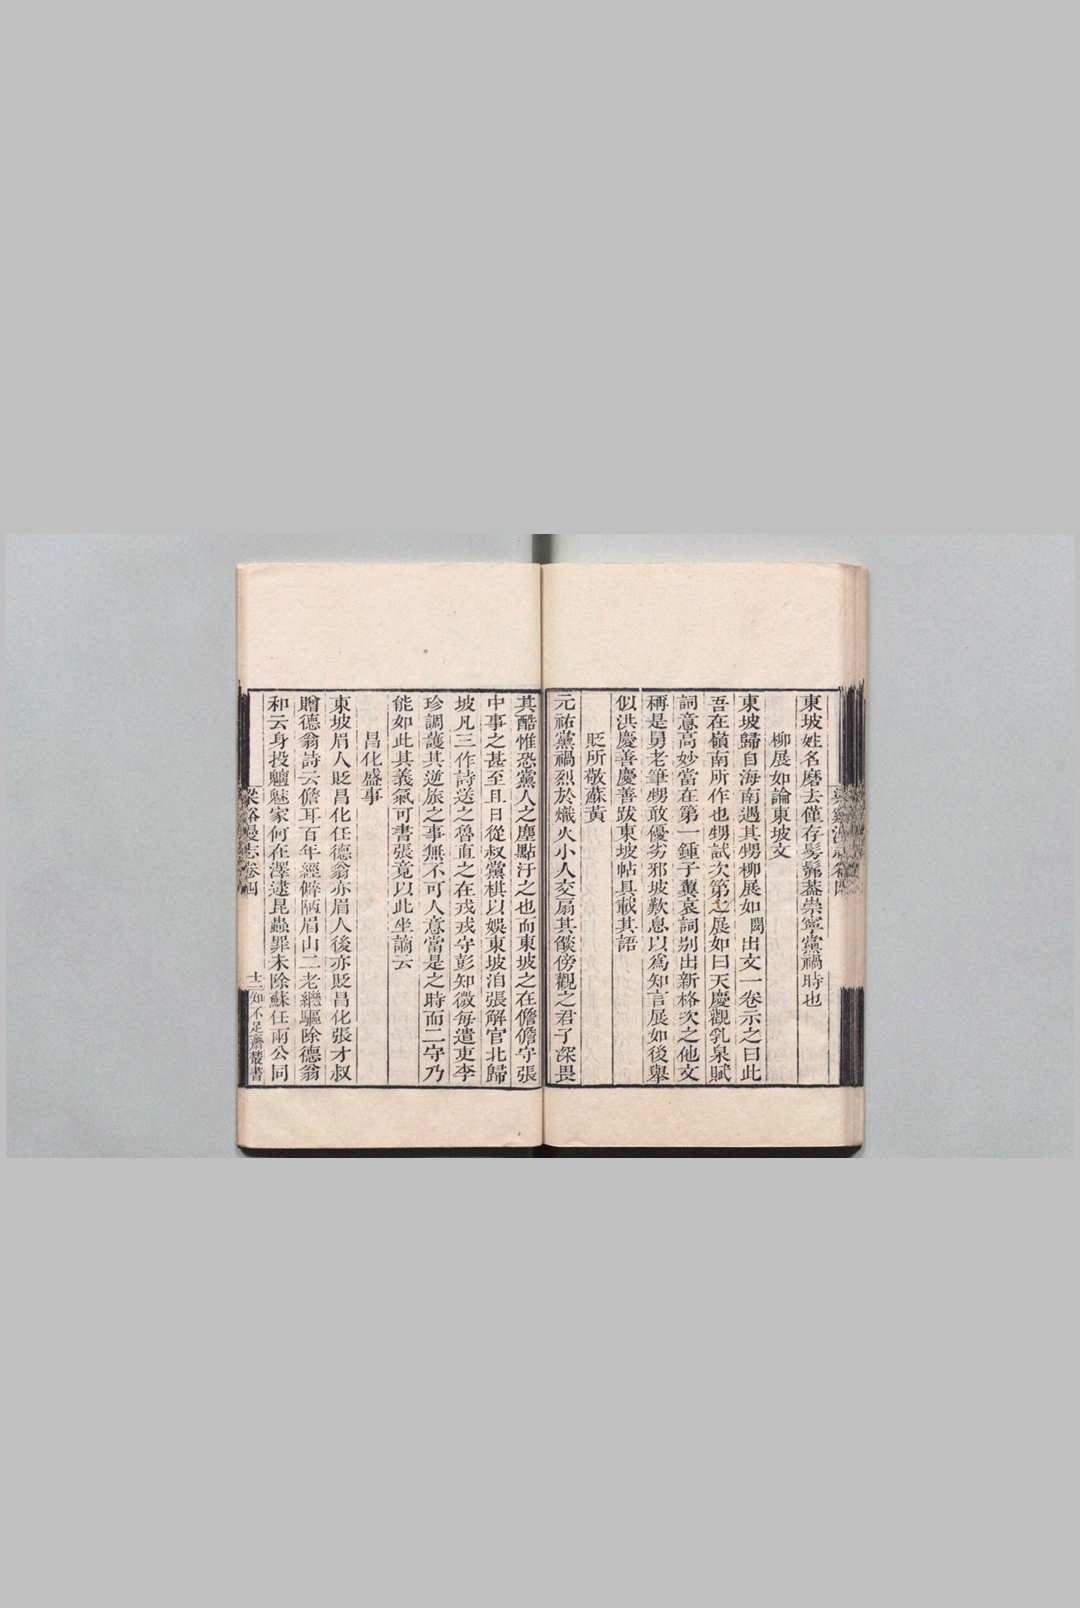 東坡姓名磨去僅存髣髴蓋崇寧黨禍時也
柳展如論東坡文
東坡歸自海南遇其甥柳展如閎出文一卷示之曰此
吾在嶺南所作也甥試次第之展如曰天慶觀乳泉賦
詞意高妙當在第一鍾子翼哀詞别出新格次之他文
稱是舅老筆甥敢優劣邪坡歎息以爲知言展如後舉
似洪慶善慶善跋東坡帖具載其語
貶所敬蘇黃
元祐黨禍烈於熾火小人交扇其燄傍觀之君子深畏
其酷惟恐黨人之塵點汙之也而東坡之在儋儋守張
中事之甚至且日從叔黨棋以娛東坡洎張解官北歸
坡凡三作詩送之魯直之在戎戎守彭知微每遣吏李
珍調護其逆旅之事無不可人意當是之時而二守乃
能如此其義氣可書張竟以此坐謫云
昌化盛事
東坡眉人貶昌化任德翁亦眉人後亦貶昌化張才叔
贈德翁詩云儋耳百年經僻陋眉山二老繼驅除德翁
和云身投魑魅家何在澤逮昆蟲罪未除蘇任兩公同
梁谿漫志卷四
十二
知不足齋叢書